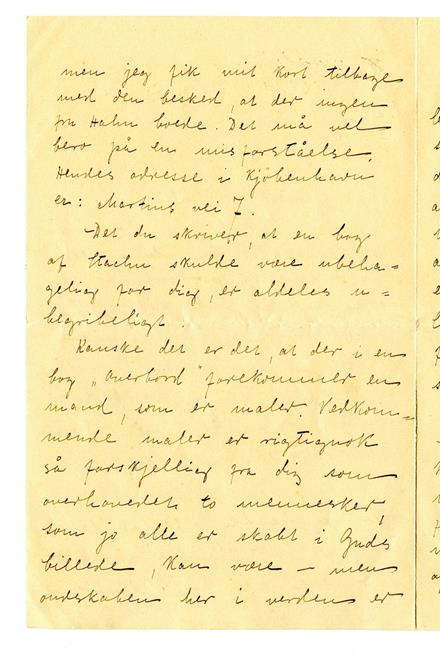 men jeg fik mit kort tilbage
med den besked, at der ingen
fru Hahn boede. Det må vel
bero på en misforståelse.
Hendes adresse i Kjöbenhavn
er: Martins vei 7.
Det du skriver, at en bog
af Stachn skulde være ubeha=
gelig for dig, er aldeles u=
begribeligt.
Kanske det er det, at der i en
bog „Overbord" forekommer en
mand, som er maler. Vedkom=
mende maler er rigtignok
så forskjellig fra dig som
overhovedet to mennesker,
som jo alle er skabt i Guds
billede, kan være – men
ondskaben her i verden er